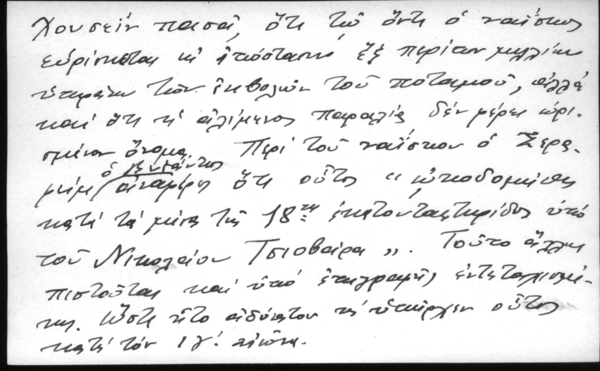 Χουσεΐν πασᾶ, ὅτι τῷ ὄντι ὁ ναΐσκος
εὑρίσκεται εἰς ἀπόστασιν ἓξ περίπου μιλίων
τῶν ἐκβολῶν τοῦ ποταμοῦ, ἀλλὰ
καὶ ὅτι ἡ ἀλίμενος παραλία δὲν φέρει ὡρι-
σμένον ὄνομα. Περὶ τοῦ ναΐσκου ὁ Σερα-
φεὶμ ὁ Βυζάντιος ἀναφέρει ὅτι οὗτος "ᾠκοδομήθη
κατὰ τὰ μέσα τῆς 18ης ἑκατονταετηρίδος ὑπὸ
τοῦ Νικολάου Τσιοβαίρα". Τοῦτο ἄλλως
πιστοῦται καὶ ὑπὸ ἐπιγραφῆς ἐντετοιχισμέ-
νης. Ὥστε ἦτο ἀδύνατον νὰ ὑπῆρχεν οὗτος
κατὰ τὸν ΙΓ΄. αἰῶνα.